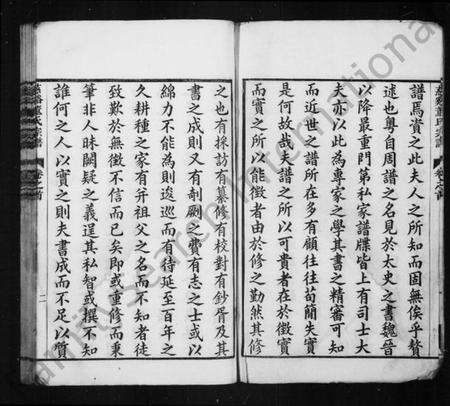 譜焉貴之此夫人之所知而固無俟乎贅
述也粵自周譜之名見於太史之書魏晉
以降最重門第私家譜牒皆上有司士大
夫亦以此為專家之學其書之精審可知
而近世之譜所在多有顧往往苟簡失實
何故哉夫譜之所以可貴者在於徵實
而實之所以能徵者由於修之勤然其修
之也有採訪有纂修有校對有鈔胥及其
書之成則又有剞劂之費有志之士或以
綿力不能為則逡巡而有待延至百年之
久耕種之家有并祖父之名而不知者徒
致歎於無徵不信而已矣即或重修而秉
筆非人昧闕疑之義逞其私智或撰不知
誰何之人以實之則夫書成而不足以質
卷之首
二
FamilySearch International